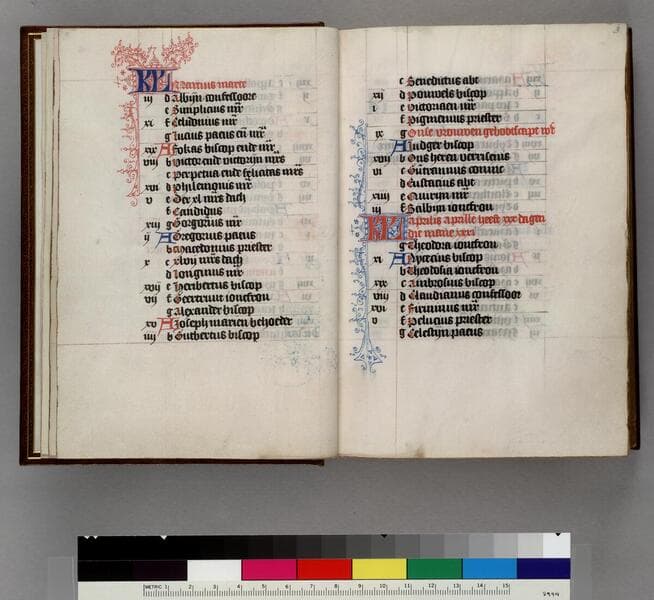 KL Martius marte
iij d Albijn confessoore
e Simplicius mr̄
xi f Celidonius mr̄
g Lucius paeus eñ mr̄
xix A Fokas biscop ende mr̄
viij b Victor ende victorijn mr̄s
c Perpetua ende felicitas mr̄s
xvi d Philemonus mr̄
v e Der xl mr̄s dach
f Candidus
xiij g Gorgonius mr̄
ij A Gregorius paeus
b Macedonius priester
x c xlvij mr̄s dach
d Longinus mr̄
xviij e Heribertus biscop
vij f Geertruut ioncfrou
g Alexander biscop
xv A Joseph marien behoeder
iiij b Gutbertus biscop
c Benedictus abt
xij d Pouwels biscop
i e Victoriaen mr̄
f Pigmenius priester
ix g Onse vrouwen
A Ludger biscop
xvij b Ons heren verrisenis
vi c Guntrannus coninc
d Eustacius abt
xiiij e Quirijn mr̄
iij f Balbijn ioncfrou
KL aprilis aprille heeft xxx dagen
die mane xxix
g Theodora ioncfrou
xi A Nycecius biscop
b Theodosia ioncfrou
xix c Ambrosius biscop
viij d Claudianus confessoor
xvi e Firminus mr̄
v f Pelucius priester
g Celestijn paeus
METRIC 1 2 3 4 5 6 7 8 9 10 11 12 13 14 15